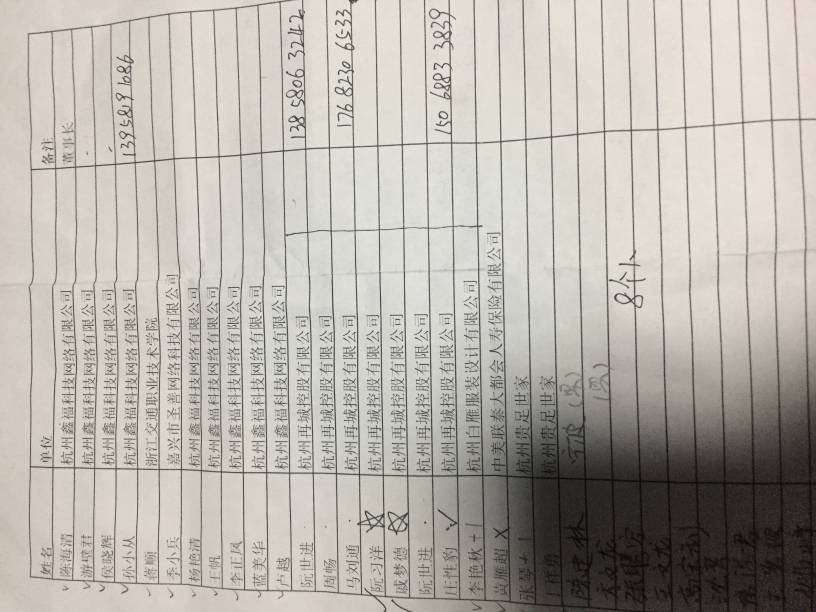 姓名 单位 备注
陈海清 杭州鑫福科技网络有限公司 董事长
游璧君 杭州鑫福科技网络有限公司
侯晓辉 杭州鑫福科技网络有限公司
孙小从 杭州鑫福科技网络有限公司 1395819 1086
蒋顺 浙江交通职业技术学院
李小兵 嘉兴市圣善网络科技有限公司
杨艳清 杭州鑫福科技网络有限公司
王帆 杭州鑫福科技网络有限公司
李正凤 杭州鑫福科技网络有限公司
蓝美华 杭州鑫福科技网络有限公司
卢越 杭州鑫福科技网络有限公司
阮世进 杭州再城控股有限公司 138 5806 3242
周畅 杭州再城控股有限公司
马刘通 杭州再城控股有限公司 176 8230 6533
阮习洋 杭州再城控股有限公司
戚梦德 杭州再城控股有限公司
阮世进 杭州再城控股有限公司
庄性豹 杭州再城控股有限公司 150 6883 3839
李艳秋+1 杭州白雁服装设计有限公司
黄雁超 X 中美联泰大都会人寿保险有限公司
张琴+1 杭州贵足世家
杭州贵足世家
陈建林 宁波
8个人